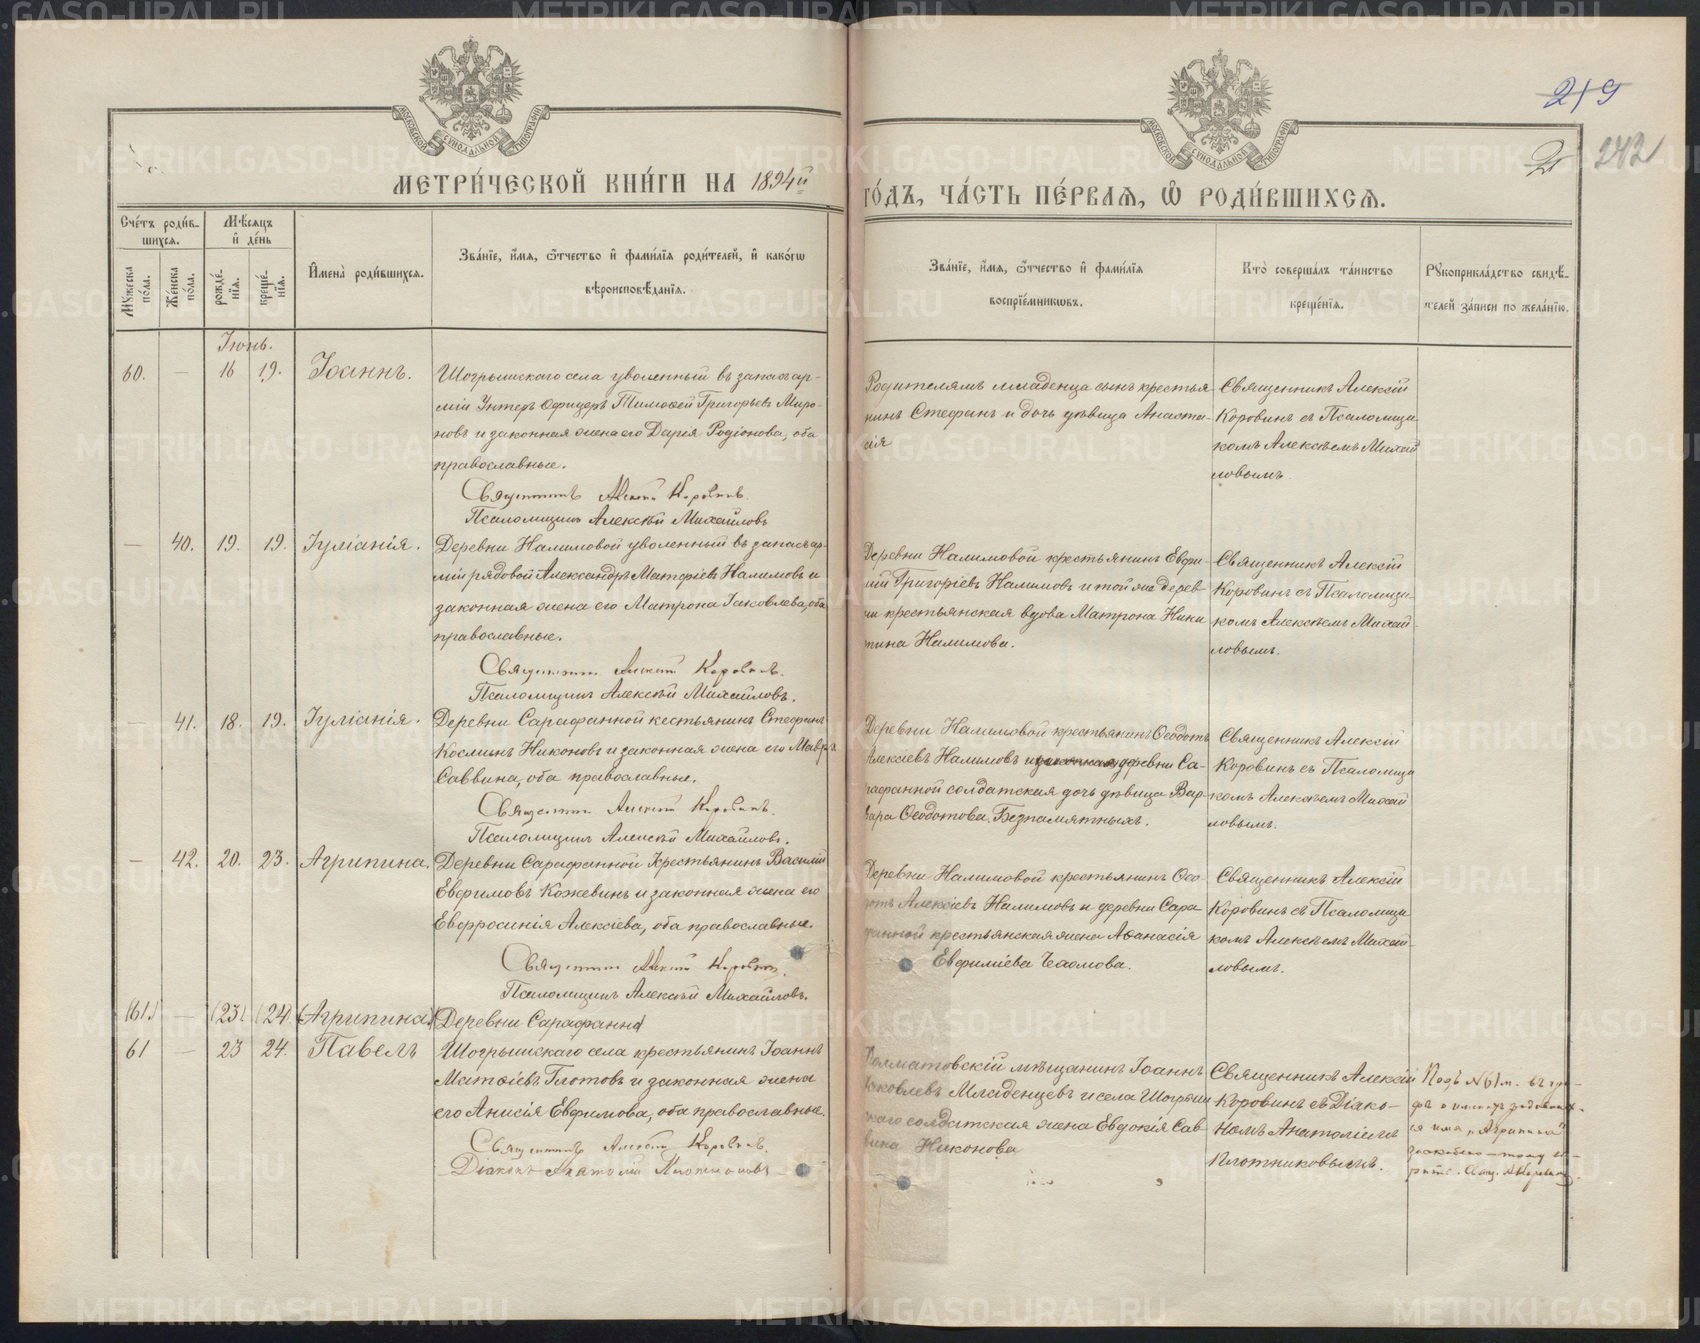 219
2
242
МОСКОВСКОЙ СѴНОДАЛЬНОЙ ТИПОГРАФІИ
МОСКОВСКОЙ СѴНОДАЛЬНОЙ ТИПОГРАФІИ
МЕТРИ́ЧЕСКОЙ КНИ́ГИ НА 1894й
ГО́ДЪ, ЧА́СТЬ ПЕ́РВАѦ, Ѽ РОДИ́ВШИХСѦ.
Сче́тъ роди́в-
шихсѧ.
Мѣ́сѧцъ
и҆ де́нь
Мꙋ́жеска
по́ла.
Же́нска
по́ла.
рожде́-
нїѧ.
креще́-
нїѧ.
И҆мена̀ роди́вшихсѧ.
Зва́нїе, и҆́мѧ, ѻ҆́тчество и҆ фами́лїѧ роди́телей, и҆ како́гѡ
вѣроисповѣ́данїѧ.
Зва́нїе, и҆́мѧ, ѻ҆́тчество и҆ фами́лїѧ
воспрїе́мникѡвъ.
Кто̀ соверша́лъ та́инство
креще́нїѧ.
Рꙋкоприкла́дство свидѣ́-
телей за́писи по жела́нїю.
Іюнь.
60. — 16 19. Іоаннъ.
Шогрышскаго села уволенный въ запасъ ар-
міи Унтеръ Офицеръ Тимоѳей Григорьевъ Миро-
новъ и законная жена его Дарія Родіонова, оба
православные.
Священникъ Алексій Коровинъ.
Псаломщикъ Алексѣй Михайловъ
Родителямъ младенца сынъ крестья-
нинъ Стефанъ и дочь дѣвица Анаста-
сія
Священникъ Алексій
Коровинъ съ Псаломщи-
комъ Алексѣемъ Михай
ловымъ.
— 40. 19. 19. Іуліанія.
Деревни Налимовой уволенный въ запасъ ар-
міи рядовой Александръ Матфіевъ Налимовъ и
законная жена его Матрона Іаковлева, оба
православные.
Священникъ Алексій Коровинъ.
Псаломщикъ Алексѣй Михайловъ.
Деревни Налимовой крестьянинъ Евфи-
мій Григоріевъ Налимовъ и той же дерев-
ни крестьянская вдова Матрона Ники
тина Налимова.
Священникъ Алексій
Коровинъ съ Псаломщи-
комъ Алексѣемъ Михай-
ловымъ.
— 41. 18. 19. Іуліанія.
Деревни Сарафанной кестьянинъ Стефанъ
Косминъ Никоновъ и законная жена его Мавра
Саввина, оба православные.
Священникъ Алексій Коровинъ.
Псаломщикъ Алексѣй Михайловъ.
Деревни Налимовой крестьянинъ Ѳеодотъ
Алексіевъ Налимовъ и законная деревни Са-
рафанной солдатская дочь дѣвица Вар-
вара Ѳеодотова Безпамятныхъ.
Священникъ Алексій
Коровинъ съ Псаломщи
комъ Алексѣемъ Михай
ловымъ.
— 42. 20. 23. Агрипина.
Деревни Сарафанной Крестьянинъ Василій
Евфимовъ Кожевинъ и законная жена его
Евфросинія Алексіева, оба православные.
Священникъ Алексій Коровинъ.
Псаломщикъ Алексѣй Михайловъ.
Деревни Налимовой крестьянинъ Ѳео-
дотъ Алексіевъ Налимовъ и деревни Сара-
фанной крестьянская жена Аѳанасія
Евфиміева
Священникъ Алексій
Коровинъ съ Псаломщи
комъ Алексѣемъ Михай-
ловымъ.
(61.) — (23) (24) (Агрипина.) (Деревни Сарафанно)
61 — 23 24. Павелъ
Шогрышскаго села крестьянинъ Іоаннъ
Матѳіевъ Глотовъ и законная жена
его Анисія Евфимова, оба православные.
Священникъ Алексій Коровинъ.
Діаконъ Анатолій Плотниковъ
Долматовскій мѣщанинъ Іоаннъ
Іаковлевъ Младенцевъ и села Шогрыш
скаго солдатская жена Евдокія Сав-
вина Никонова
Священникъ Алексій
Коровинъ съ Діако-
номъ Анатоліемъ
Плотниковымъ.
Подъ № 61 м. въ гра-
фѣ о именахъ родивших-
ся имя „Агрипина"
METRIKI.GASO-URAL.RU